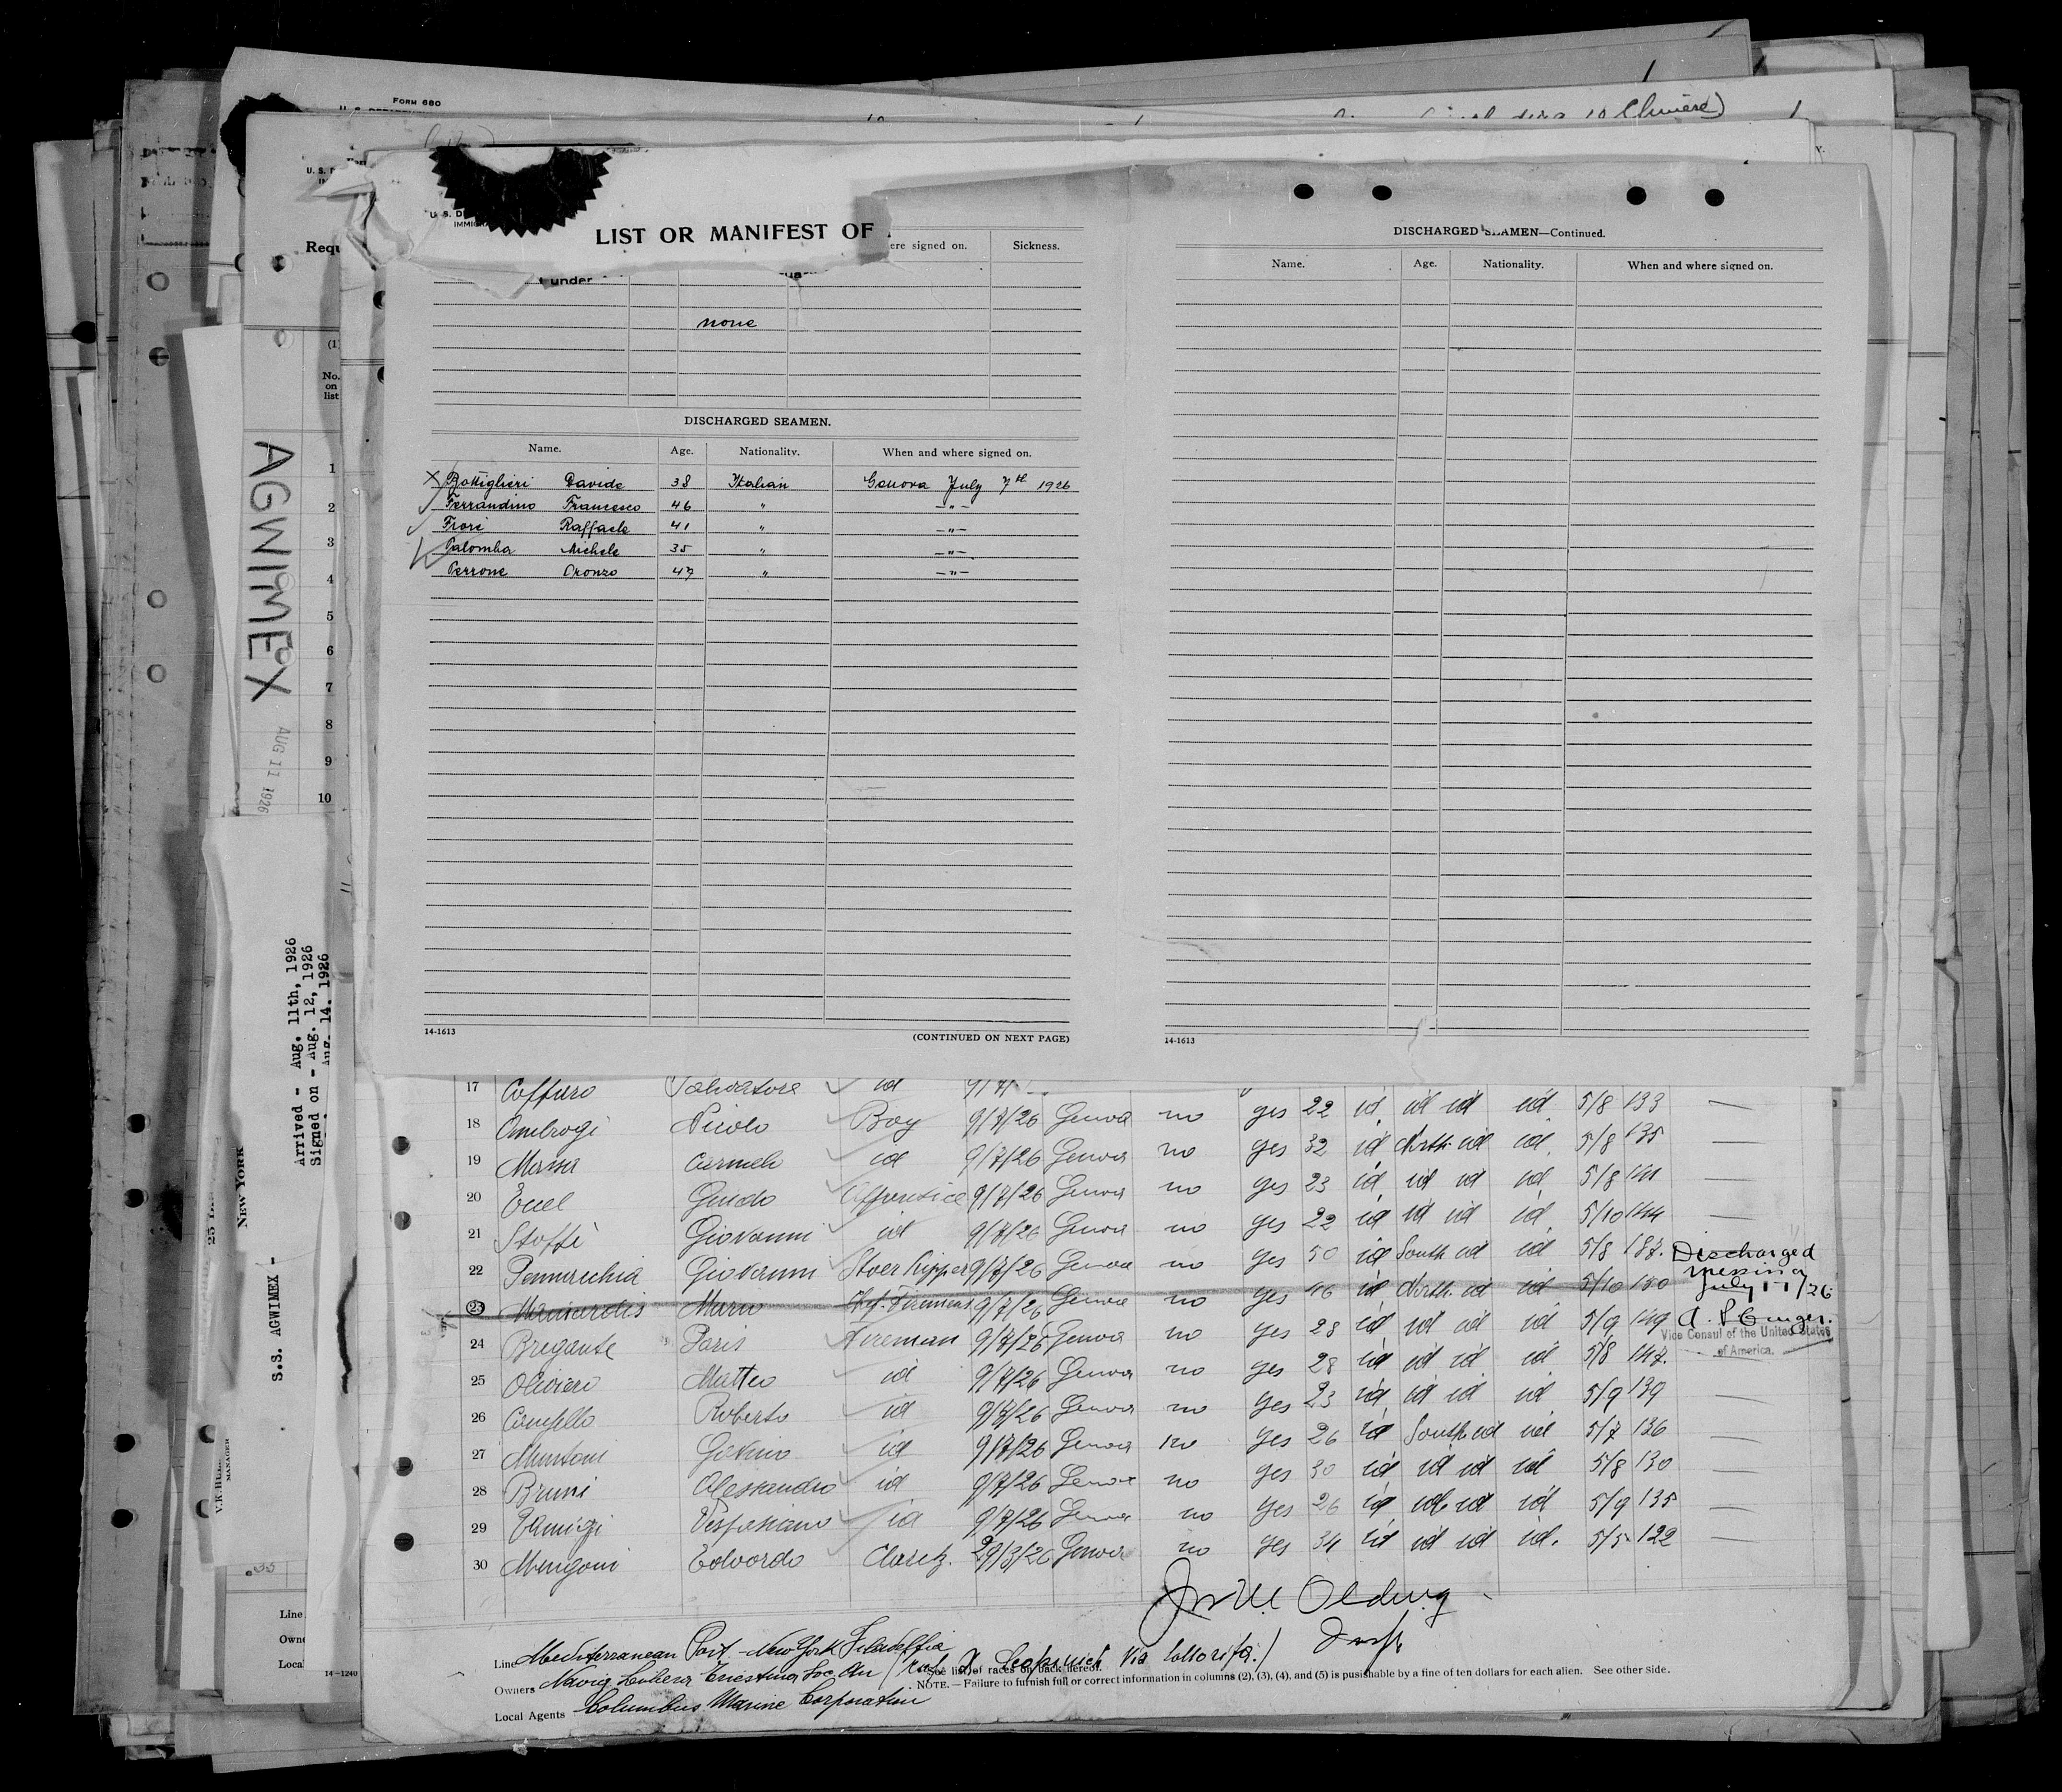 FORM 680
U. S. D
IMMIGRA
LIST OR MANIFEST OF
ere signed on. Sickness.
t under
none
DISCHARGED SEAMEN.
Name. Age. Nationality. When and where signed on.
X Bottiglieri Davide 38 Italian Genova July 7th 1926
Ferrandino Francesco 46 " —"—
Fiore Raffaele 41 " —"—
Palomba Michele 35 " —"—
Perrone Oronzo 47 " —"—
14-1613 (CONTINUED ON NEXT PAGE)
DISCHARGED SEAMEN—Continued.
Name. Age. Nationality. When and where signed on.
14-1613
Requ
(1)
No.
on
list
1
2
3
4
5
6
7
8
9
10
AGWIMEX
AUG 11 1926
Arrived - Aug. 11th, 1926
Signed on - Aug. 12, 1926
Aug. 14. 1926
S.S. AGWIMEX -
NEW YORK
MANAGER
17 Salvatore id
18 Ambrogi Nicolo Boy 9/7/26 Genova no yes 22 id id id id 5/8 133 —
19 Massa Carmelo id 9/7/26 Genova no yes 32 id North id id 5/8 135 —
20 Guido Apprentice 9/7/26 Genova no yes 23 id id id id 5/8 141 —
21 Stoffé Giovanni id 9/7/26 Genova no yes 22 id id id id 5/10 144 —
22 Giovanni 9/7/26 Genova no yes 50 id South id id 5/8 187. Discharged
Messina
July 11/26
23 Mario 9/7/26 Genova no yes 46 id North id id 5/10 150
24 Bregante Paris Fireman 9/7/26 Genova no yes 28 id id id id 5/9 149
Vice Consul of the United States
of America.
25 Olivieri Matteo id 9/7/26 Genova no yes 28 id id id id 5/8 147.
26 Roberto id 9/7/26 Genova no yes 23 id id id id 5/9 139 —
27 Muntoni Gavino id 9/7/26 Genova no yes 26 id South id id 5/7 136 —
28 Bruni Alessandro id 9/7/26 Genova no yes 30 id id id id 5/8 130 —
29 Vespasiano id 9/7/26 Genova no yes 26 id id id id 5/9 135 —
30 Mengoni Edoardo 29/3/26 Genova no yes 34 id id id id. 5/5 122 —
Line Mediterranean Port - New York
*See list of races on back hereof.
Owners Navig. Libera Triestina Soc. An
NOTE.—Failure to furnish full or correct information in columns (2), (3), (4), and (5) is punishable by a fine of ten dollars for each alien. See other side.
Local Agents Columbus Marine Corporation
Line
Owne
Local
14—1240